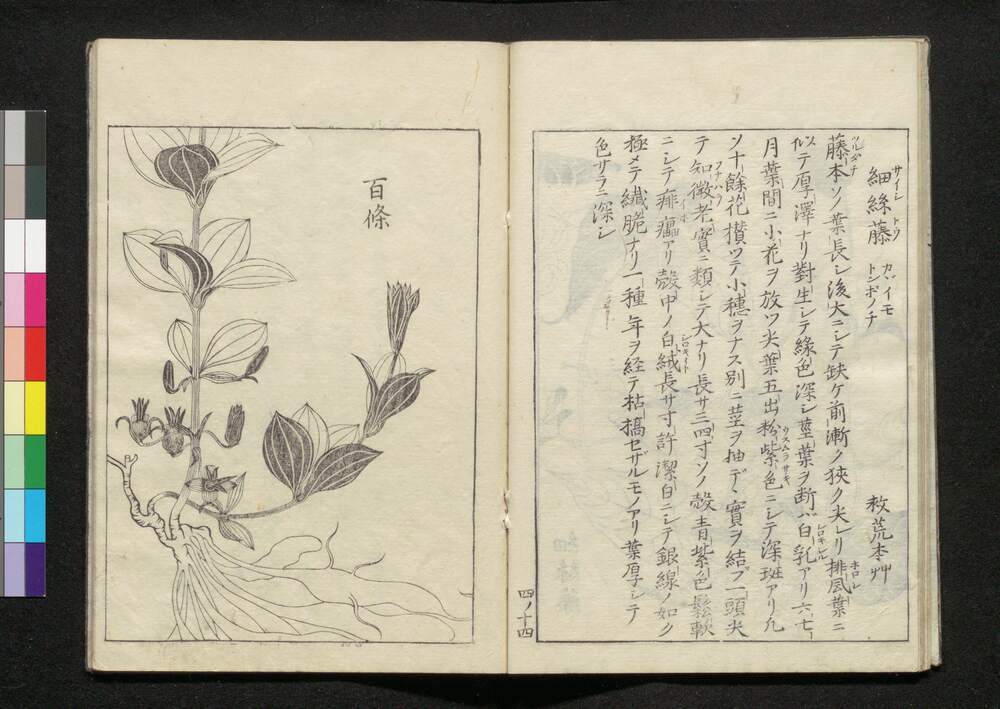 細絲藤 サイシトウ カバイモ トンボノチ 救荒本艸
藤本ソノ葉長シ後大ニシテ缺ケ前漸ク狹ク尖レリ排風葉ニ
似テ厚澤ナリ對生シテ綠色深シ莖葉ヲ断ハ白乳アリ六七
月葉間ニ小花ヲ放ツ尖葉五出粉紫色ニシテ深斑アリ凡
ソ十餘花攢ツテ小穗ヲナス別ニ莖ヲ抽デヽ實ヲ結ブ一頭尖
テ知微老實ニ類シテ大ナリ長サ三四寸ソノ殼青紫色鬆軟
ニシテ痱㿔アリ殼中ノ白絨長サ寸許潔白ニシテ銀線ノ如ク
極メテ纎脆ナリ一種年ヲ経テ枯槁セザルモノアリ葉厚シテ
色サラニ深シ
四ノ十四
百條